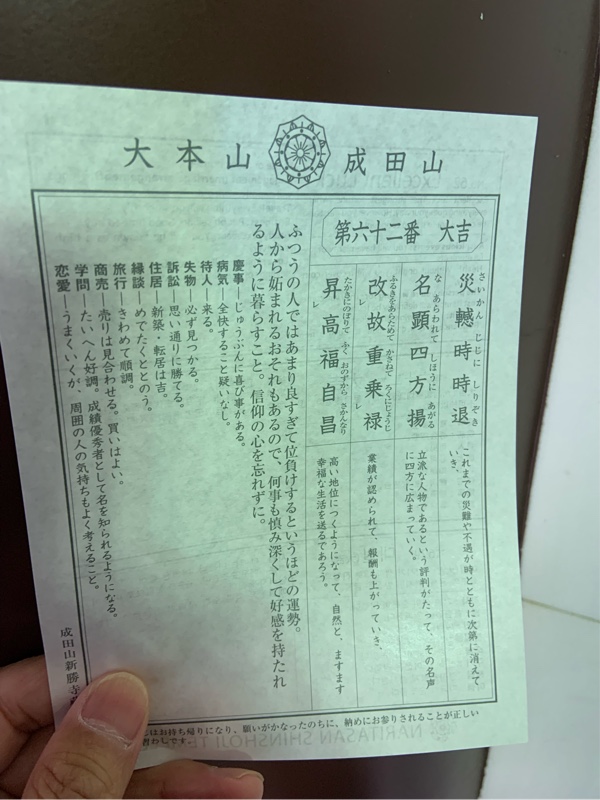 大本山 成田山
第六十二番 大吉
さいかん じじに しりぞき
災轗時時退
これまでの災難や不遇が時とともに次第に消えていき、
な あらわれて しほうに あがる
名顕四方揚
立派な人物であるという評判がたって、その名声に四方に広まっていく。
ふるきをあらためて かさねて ろくにじょうじ
改レ故重乗レ禄
業績が認められて、報酬も上がっていき、
たかきにのぼりて ふく おのずから さかんなり
昇レ高福自昌
高い地位につくようになって、自然と、ますます幸福な生活を送るであろう。
ふつうの人ではあまり良すぎて位負けするというほどの運勢。
人から妬まれるおそれもあるので、何事も慎み深くして好感を持たれ
るように暮らすこと。信仰の心を忘れずに。
慶事―じゅうぶんに喜び事がある。
病気―全快すること疑いなし。
待人―来る。
失物―必ず見つかる。
訴訟―思い通りに勝てる。
住居―新築・転居は吉。
縁談―めでたくととのう。
旅行―きわめて順調。
商売―売りは見合わせる。買いはよい。
学問―たいへん好調。成績優秀者として名を知られるようになる。
恋愛―うまくいくが、周囲の人の気持ちもよく考えること。
成田山新勝寺
はお持ち帰りになり、願いがかなったのちに、納めにお参りされることが正しい
習わしです。
NARITASAN SHINSHOJI TE